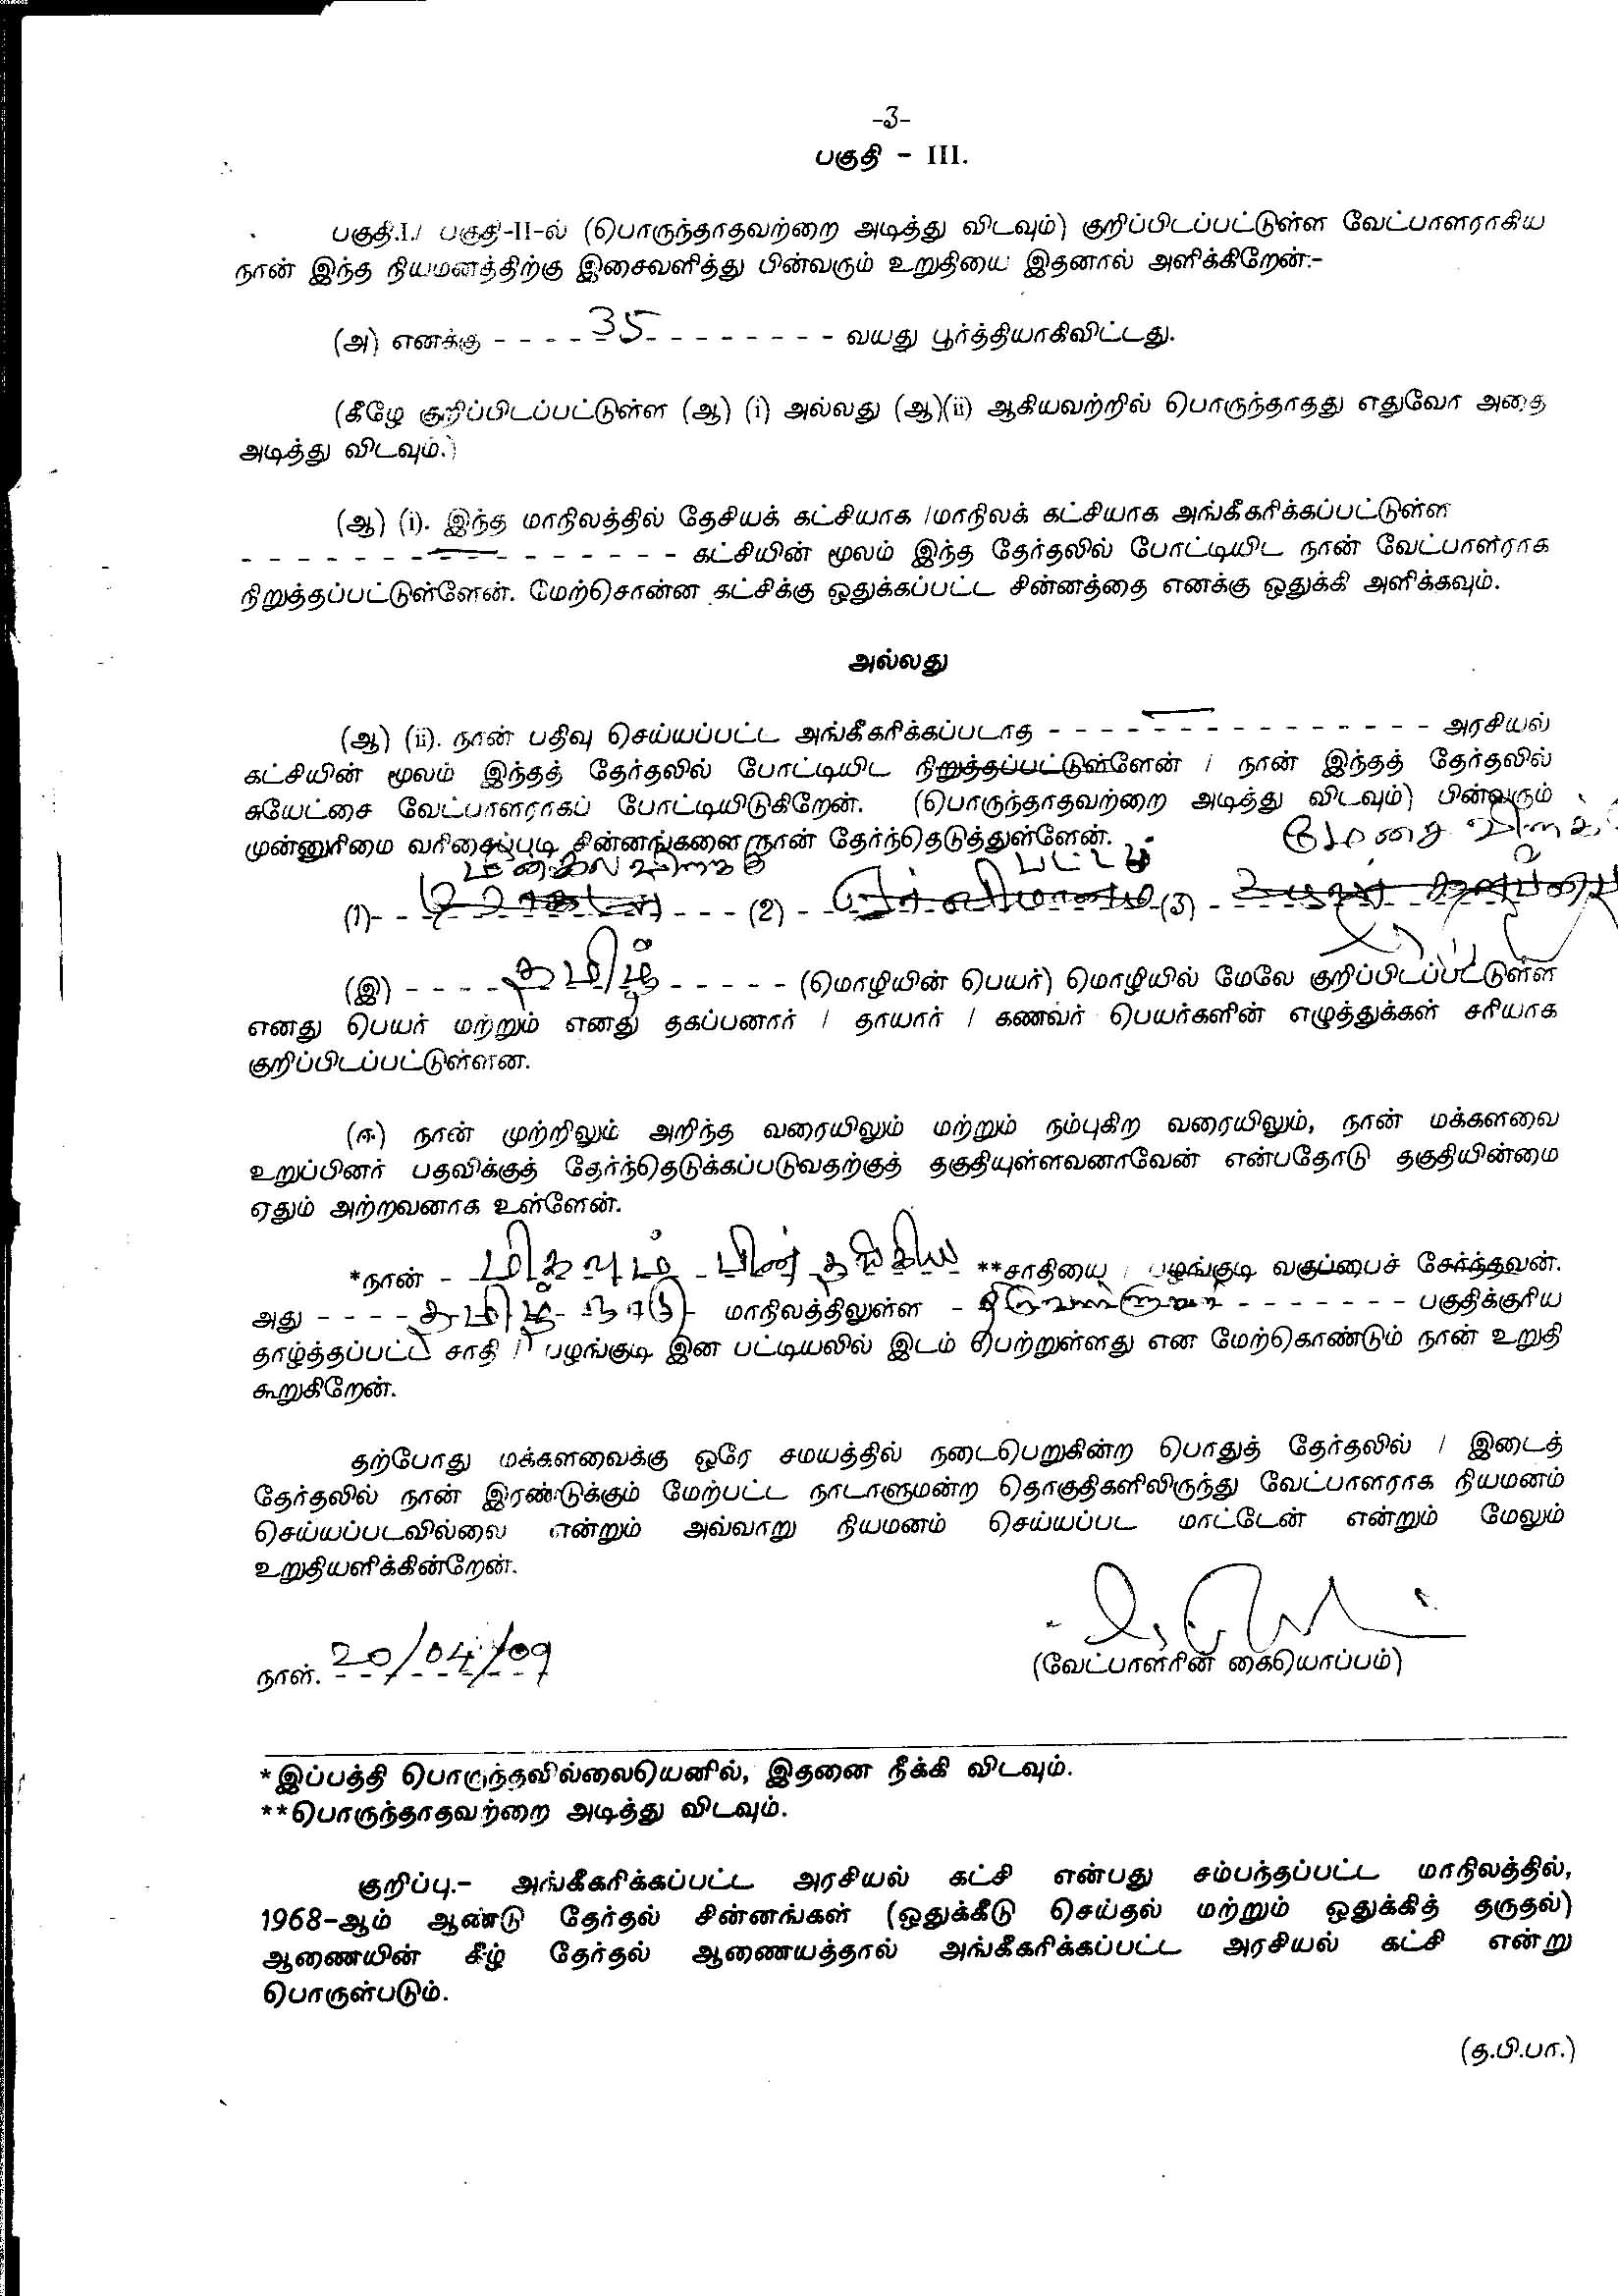 -3-
பகுதி - III.
பகுதி.I./ பகுதி-II-ல் (பொருந்தாதவற்றை அடித்து விடவும்) குறிப்பிடப்பட்டுள்ள வேட்பாளராகிய
நான் இந்த நியமனத்திற்கு இசைவளித்து பின்வரும் உறுதியை இதனால் அளிக்கிறேன்:-
(அ) எனக்கு - - - - - 35 - - - - - - - - - வயது பூர்த்தியாகிவிட்டது.
(கீழே குறிப்பிடப்பட்டுள்ள (ஆ) (i) அல்லது (ஆ)(ii) ஆகியவற்றில் பொருந்தாதது எதுவோ அதை
அடித்து விடவும்.)
(ஆ) (i). இந்த மாநிலத்தில் தேசியக் கட்சியாக /மாநிலக் கட்சியாக அங்கீகரிக்கப்பட்டுள்ள
- - - - - - - - - - - - - - - - கட்சியின் மூலம் இந்த தேர்தலில் போட்டியிட நான் வேட்பாளராக
நிறுத்தப்பட்டுள்ளேன். மேற்சொன்ன கட்சிக்கு ஒதுக்கப்பட்ட சின்னத்தை எனக்கு ஒதுக்கி அளிக்கவும்.
அல்லது
(ஆ) (ii). நான் பதிவு செய்யப்பட்ட அங்கீகரிக்கப்படாத - - - - - - - - - - - - - - - - அரசியல்
கட்சியின் மூலம் இந்தத் தேர்தலில் போட்டியிட நிறுத்தப்பட்டுள்ளேன் / நான் இந்தத் தேர்தலில்
சுயேட்சை வேட்பாளராகப் போட்டியிடுகிறேன். (பொருந்தாதவற்றை அடித்து விடவும்) பின்வரும்
முன்னுரிமை வரிசைப்படி சின்னங்களை நான் தேர்ந்தெடுத்துள்ளேன். மேசை விளக்
பட்டம்
(1)- - - - - - (2) - - - - (3) - - - -
(இ) - - - - தமிழ் - - - - - (மொழியின் பெயர்) மொழியில் மேலே குறிப்பிடப்பட்டுள்ள
எனது பெயர் மற்றும் எனது தகப்பனார் / தாயார் / கணவர் பெயர்களின் எழுத்துக்கள் சரியாக
குறிப்பிடப்பட்டுள்ளன.
(ஈ) நான் முற்றிலும் அறிந்த வரையிலும் மற்றும் நம்புகிற வரையிலும், நான் மக்களவை
உறுப்பினர் பதவிக்குத் தேர்ந்தெடுக்கப்படுவதற்குத் தகுதியுள்ளவனாவேன் என்பதோடு தகுதியின்மை
ஏதும் அற்றவனாக உள்ளேன்.
*நான் - மிகவும் பின் தங்கிய **சாதியை / பழங்குடி வகுப்பைச் சேர்ந்தவன்.
அது - - - - தமிழ் நாடு - மாநிலத்திலுள்ள - திருவள்ளுவர் - - - - - - - பகுதிக்குரிய
தாழ்த்தப்பட்ட சாதி / பழங்குடி இன பட்டியலில் இடம் பெற்றுள்ளது என மேற்கொண்டும் நான் உறுதி
கூறுகிறேன்.
தற்போது மக்களவைக்கு ஒரே சமயத்தில் நடைபெறுகின்ற பொதுத் தேர்தலில் / இடைத்
தேர்தலில் நான் இரண்டுக்கும் மேற்பட்ட நாடாளுமன்ற தொகுதிகளிலிருந்து வேட்பாளராக நியமனம்
செய்யப்படவில்லை என்றும் அவ்வாறு நியமனம் செய்யப்பட மாட்டேன் என்றும் மேலும்
உறுதியளிக்கின்றேன்.
நாள். 20/04/09
(வேட்பாளரின் கையொப்பம்)
*இப்பத்தி பொருந்தவில்லையெனில், இதனை நீக்கி விடவும்.
**பொருந்தாதவற்றை அடித்து விடவும்.
குறிப்பு.- அங்கீகரிக்கப்பட்ட அரசியல் கட்சி என்பது சம்பந்தப்பட்ட மாநிலத்தில்,
1968-ஆம் ஆண்டு தேர்தல் சின்னங்கள் (ஒதுக்கீடு செய்தல் மற்றும் ஒதுக்கித் தருதல்)
ஆணையின் கீழ் தேர்தல் ஆணையத்தால் அங்கீகரிக்கப்பட்ட அரசியல் கட்சி என்று
பொருள்படும்.
(த.பி.பா.)